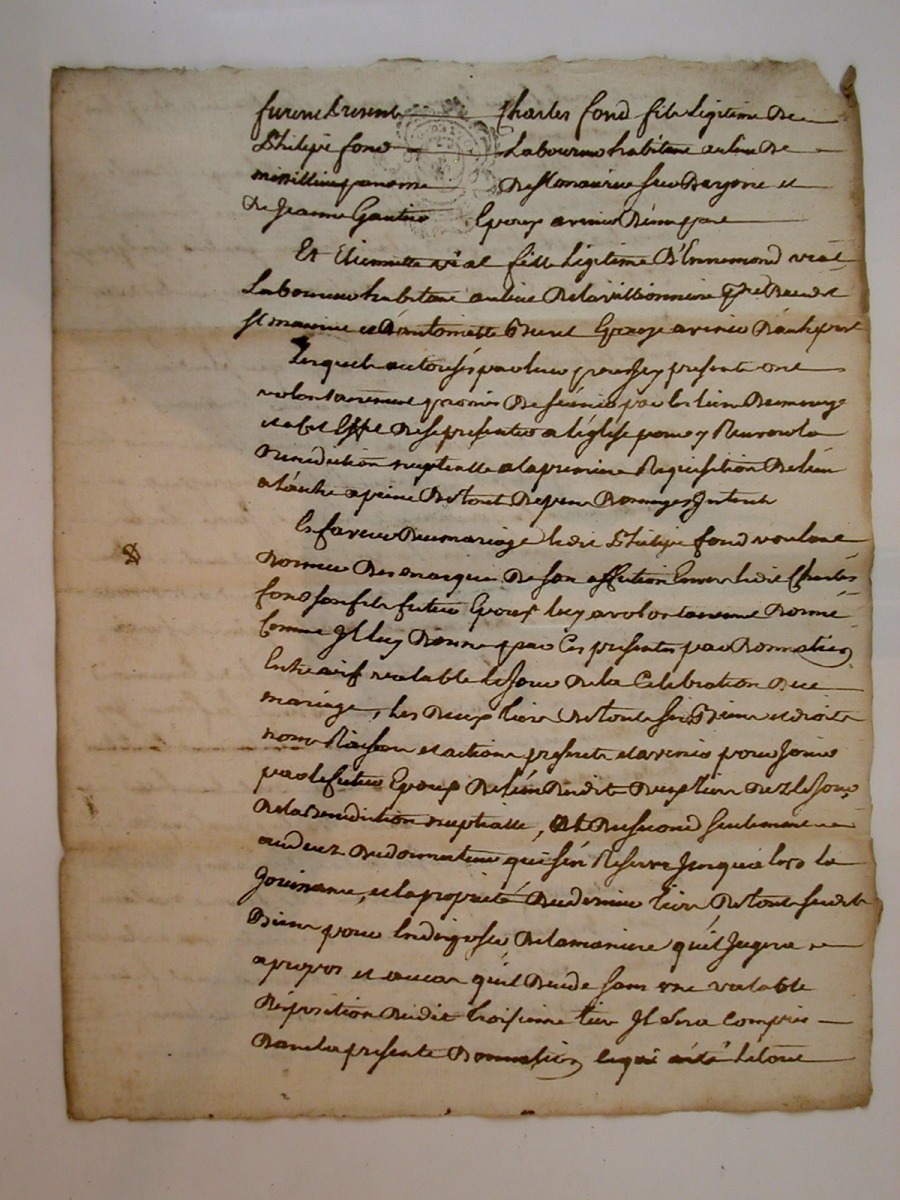 furent presents Charles fond fils Legitime De
Philipe fond Laboureur habitant au lieu De
De St maurice sur Dargoire et
De Jeanne Gautier Epoux avenir D'une part
Et Etiennette vial fille Legitime D'Ennemond vial
Laboureur habitant au lieu De la villonniere psse Dudit
St maurice et D'antoinette Epouse avenir D'autre part
Lesquels autorisés par leur peres cy presents ont
volontairement promis De s'unir par les liens Du mariage
et a cet Effet De se presenter a l'église pour y Recevoir la
Benediction nuptialle a la premiere Requisition De l'un
a l'autre a peine De tous Depens Domages Interets
En faveur Du mariage ledit Philipe fond voulant
Donner Des marques De son affection Envers ledit Charles
fond son fils futur Epoux luy a volontairement Donné
Comme Il luy Donne par Ces presentes par Donnation
Entre vif valable le Jour De la Celebration Du
mariage, les Deux tiers De tous ses Biens et droits
noms Raisons et actions presents et avenir pour Jouir
par le futur Epoux De l'un Desdits Deux tiers Dez le Jour
De la Benediction nuptialle, et Du second seulement
au decez Du donnateur qui s'en Reserve Jusqu'a lors la
Jouissance, et la proprieté Du dernier tiers De tous sesdits
Biens pour En disposer De la maniere qu'il Jugera
a propos et au cas qu'il Decede sans une valable
Disposition Dudit troisieme tier Il Sera Compris
Dans la presente Donnation ce qui a été le tout